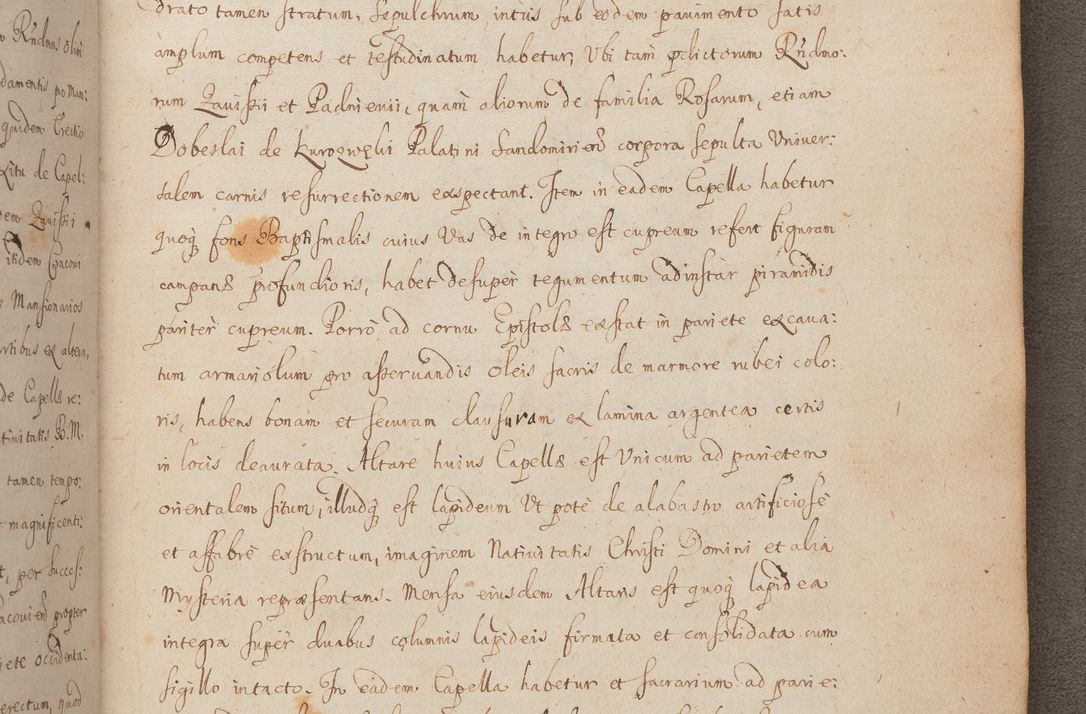 o Rńdmus olim
damentis po Man:
quidem Erectio
Ritu de Capel:
dem Zavissii
ibidem Cracovi
s Mansionarios
rtibus ex altera,
de Capellæ re:
tivitatis B.M.
tamen tempo:
magnificenti:
t, per succes:
acovień propter
riete occidenta:
erectum, quod
drato tamen stratum, Sepulchrum intùs sub eodem pavimento satis
amplum competens et testudinatum habetur, Ubi tam pdictorum Rńdmo:
rum Zavissii et Padnievii, quam aliorum de familia Rosarum, etiam
Dobeslai de Kurozwęki Palatini Sandomirień corpora sepulta Univer:
salem carnis resurrectionem exspectant. Item in eadem Capella habetur
quoq; fons Baptismalis cuius Vas de integro est cupreum refert figuram
campanæ profundioris, habet desuper tegumentum ad instar piramidis
pariter cupreum. Porrò ad cornu Epistolæ exstat in pariete excava:
tum armariolum pro asservandis oleis sacris de marmore rubei colo:
ris, habens bonam et securam clausuram ex lamina argentea certis
in locis deaurata. Altare huius Capellæ est Unicum ad parietem
orientalem situm, illudq; est lapideum Ut potè de alabastro artificiosè
et affabrè exstructum, imaginem Nativitatis Christi Domini et alia
Mysteria repræsentans. Mensa eiusdem Altaris est quoq; lapidea
integra super duabus columnis lapideis firmata et consolidata cum
sigillo intacto. In eadem Capella habetur et sacrarium ad parie: